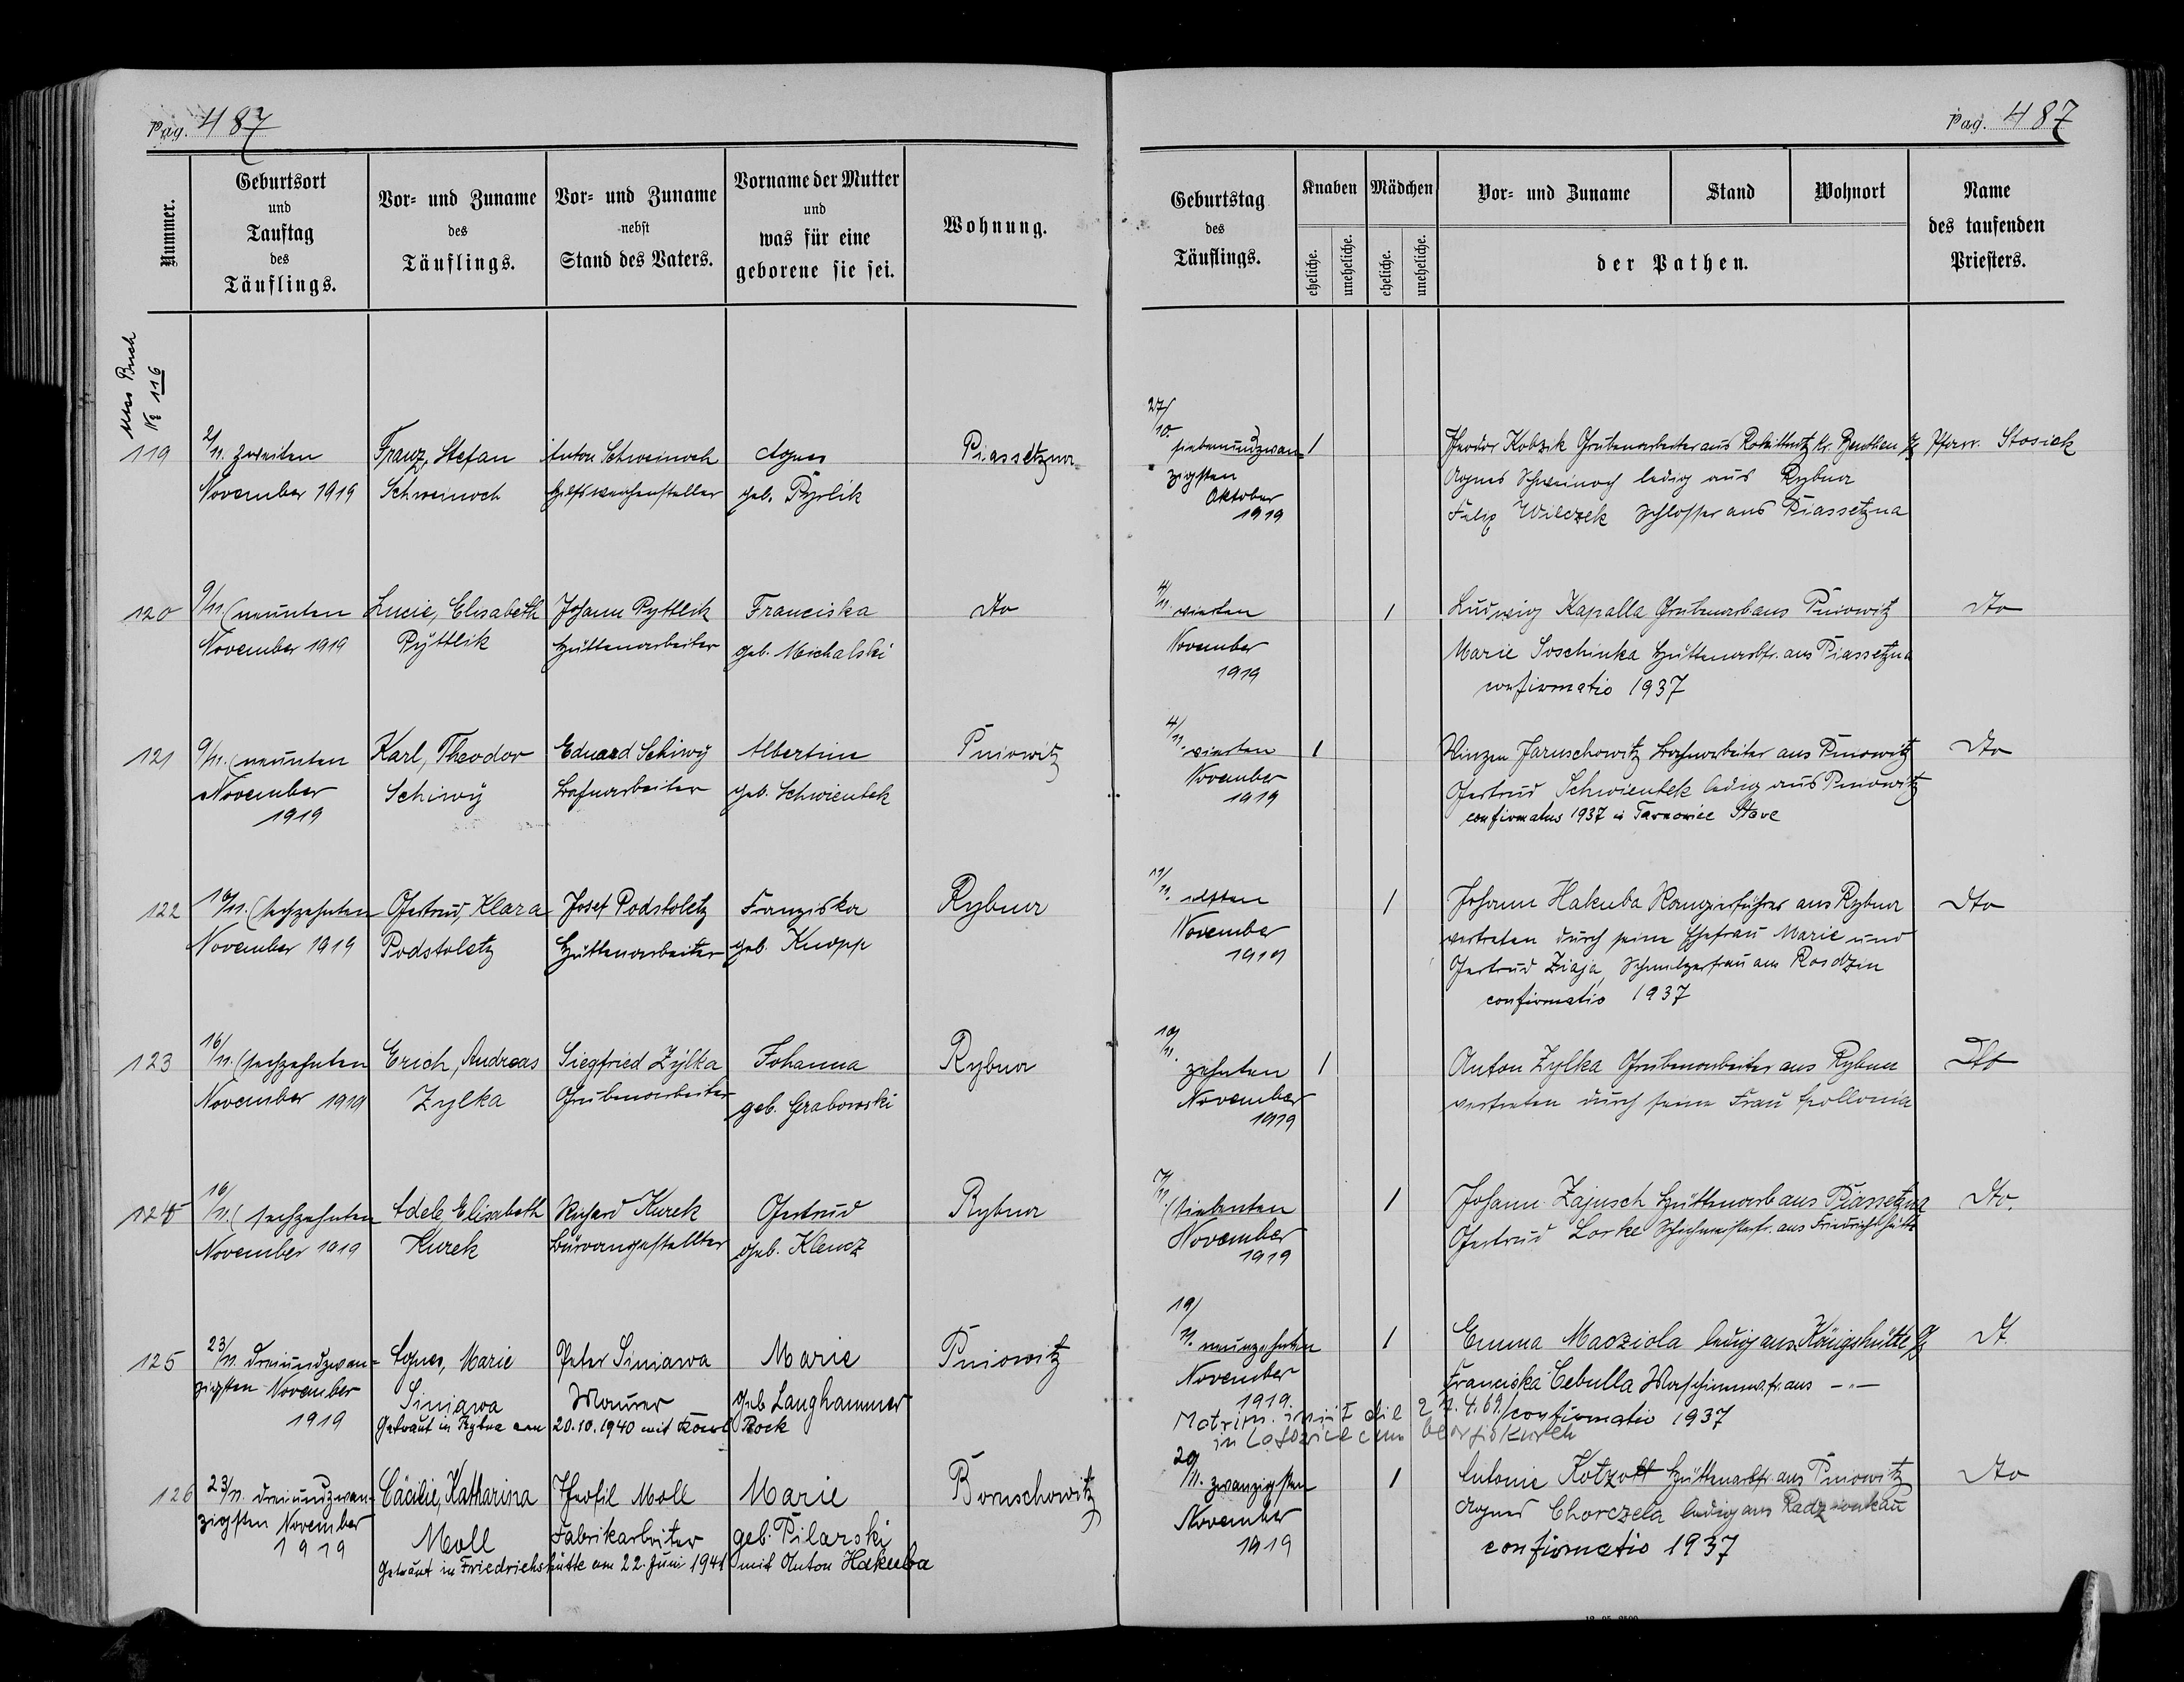 Pag. 487
Pag. 487
Nummer.
Geburtsort
und
Tauftag
des
Täuflings.
Vor- und Zuname
des
Täuflings.
Vor- und Zuname
nebst
Stand des Vaters.
Vorname der Mutter
und
was für eine
geborene sie sei.
Wohnung.
Geburtstag
des
Täuflings.
Knaben
Mädchen
eheliche.
uneheliche.
eheliche.
uneheliche.
Vor- und Zuname
Stand
Wohnort
der Pathen.
Name
des taufenden
Priesters.
Buch
№ 116
119
2/11. zweiten
November 1919
Franz, Stefan
Schweinoch
Anton Schweinoch
Hilfsweichensteller
Agnes
geb. Pyrlik
Piassetzna
27/10.
siebenundzwan=
zigsten
Oktober
1919
1
Theodor Kobzik Grubenarbeiter aus Rokittnitz Kr. Beuthen
Agnes Schweinoch ledig aus Rybna
Felix Wilczek Schlosser aus Piassetzna
Pfarr. Stosiek
120
9/11. (neunten
November 1919
Lucie, Elisabeth
Pyttlik
Johann Pyttlik
Hüttenarbeiter
Franciska
geb. Michalski
dto
4/11. vierten
November
1919
1
Ludwig Kapalla Grubenarb aus Pniowitz
Marie Soschinka Hüttenarbfr. aus Piassetzna
confirmatio 1937
dto
121
9/11. (neunten
November
1919
Karl, Theodor
Schiwy
Eduard Schiwy
Bahnarbeiter
Albertine
geb. Schwientek
Pniowitz
4/11. vierten
November
1919
1
Vinzen Jaruschowitz Bahnarbeiter aus Pniowitz
Gertrud Schwientek ledig aus Pniowitz
confirmatus 1937 in Tarnowice Stare
dto
122
16/11. (sechzehnten
November 1919
Gertrud, Klara
Podstoletz
Josef Podstoletz
Hüttenarbeiter
Franziska
geb. Knopp
Rybna
11/11. elften
November
1919
1
Johann Hakuba Rangierführer aus Rybna
vertreten durch seine Ehefrau Marie und
Gertrud Ziaja, Schmelzerfrau aus Rosdzin
confirmatio 1937
dto
123
16/11. (sechzehnten
November 1919
Erich, Andreas
Zylka
Siegfried Zylka
Grubenarbeiter
Johanna
geb. Grabowski
Rybna
10/11.
zehnten
November
1919
1
Anton Zylka Grubenarbeiter aus Rybna
vertreten durch seine Frau Apollonia
dto
124
16/11. (sechzehnten
November 1919
Adele, Elisabeth
Kurek
Richard Kurek
Büroangestellter
Gertrud
geb. Klencz
Rybna
7/11. (siebenten
November
1919
1
Johann Zajusch Hüttenarb aus Piassetzna
Gertrud Lorke Schichtmeisterfr. aus Friedrichshütte
dto.
125
23/11. dreiundzwan=
zigsten November
1919
Agnes, Marie
Siniawa
Peter Siniawa
Maurer
Marie
geb Langhammer
Getraut in Rybna am 20.10.1940 mit Rock
Pniowitz
19/11. neunzehnten
November
1919.
1
Emma Madziola ledig aus Königshütte
Franciska Cebulla aus -"-
confirmatio 1937
dt
126
23/11. dreiundzwan=
zigsten November
1919
Cäcilie, Katharina
Moll
Theofil Moll
Fabrikarbeiter
Marie
geb. Pilarski
Getraut in Friedrichshütte am 22. Juni 1941 mit Anton Hakuba
Boruschowitz
20/11. zwanzigsten
November
1919
1
Antonie Kotzott Hüttenarbfr. aus Pniowitz
Agnes Chorczela ledig aus Radzionkau
confirmatio 1937
dto